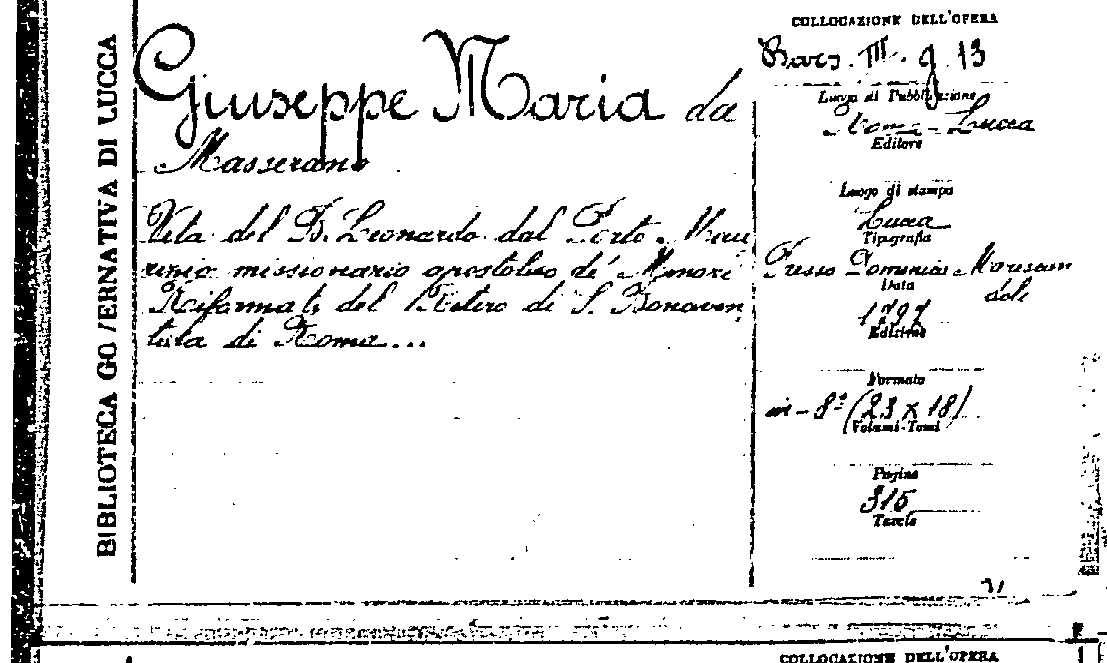 BIBLIOTECA GO/ERNATIVA DI LUCCA
Giuseppe Maria da
Masserano
Vita del B. Leonardo dal Porto Mau
rizio missionario apostolico de' Minori
Riformati del Ritiro di S. Bonaven
tura di Roma...
COLLOCAZIONE DELL'OPERA
Bacs. III. g. 13
Luogo di Pubblicazione
Roma - Lucca
Editore
Luogo di stampa
Lucca
Tipografia
Presso Domenico Marescan
doli
Data
Edizione
Formato
in-8º (23 x 18)
Volumi-Tomi
Pagine
315
Tavole
COLLOCAZIONE DELL'OPERA